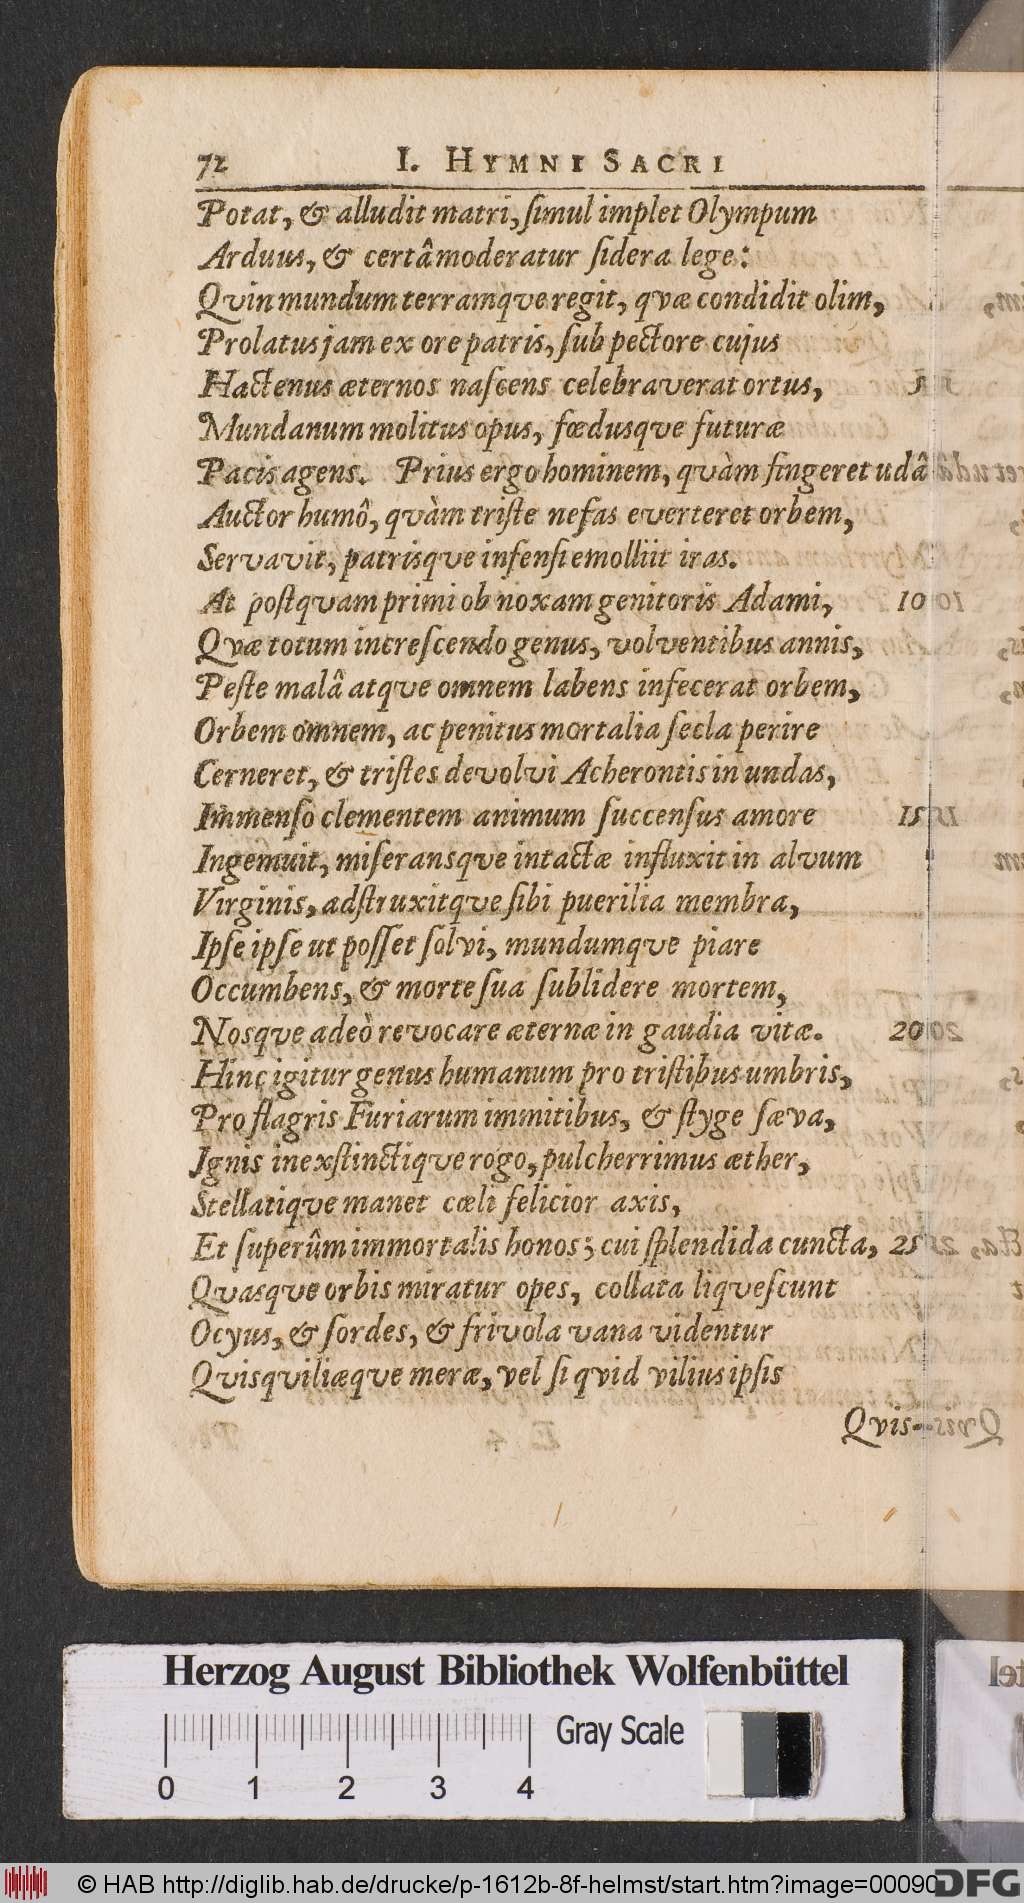 72 I. HYMNI SACRI
Potat, & alludit matri, ſimul implet Olympum
Arduus, & certâ moderatur ſidera lege:
Qvin mundum terramqve regit, qvæ condidit olim,
Prolatus jam ex ore patris, ſub pectore cujus
Hactenus æternos naſcens celebraverat ortus, 5
Mundanum molitus opus, fœdusqve futuræ
Pacis agens. Prius ergo hominem, quàm fingeret udâ
Auctor humô, qvàm triſte nefas everteret orbem,
Servavit, patrisqve infenſi emolliit iras.
At poſtqvam primi ob noxam genitoris Adami, 10
Qvæ totum increſcendo genus, volventibus annis,
Peſte malâ atqve omnem labens infecerat orbem,
Orbem omnem, ac penitus mortalia ſecla perire
Cerneret, & triſtes devolvi Acherontis in undas,
Immenſo clementem animum ſuccenſus amore 15
Ingemuit, miſeransqve intactæ influxit in alvum
Virginis, adſtruxitqve ſibi puerilia membra,
Ipſe ipſe ut poſſet ſolvi, mundumqve piare
Occumbens, & morte ſua ſublidere mortem,
Nosqve adeò revocare æternæ in gaudia vitæ. 20
Hinc igitur genus humanum pro triſtibus umbris,
Pro flagris Furiarum immitibus, & ſtyge ſæva,
Ignis inexſtinctiqve rogo, pulcherrimus æther,
Stellatiqve manet cœli felicior axis,
Et ſuperûm immortalis honos; cui ſplendida cuncta, 25
Qvasqve orbis miratur opes, collata liqveſcunt
Ocyus, & ſordes, & frivola vana videntur
Qvisqviliæqve meræ, vel ſi qvid vilius ipſis
Qvis-
Herzog August Bibliothek Wolfenbüttel
Gray Scale
0 1 2 3 4
© HAB http://diglib.hab.de/drucke/p-1612b-8f-helmst/start.htm?image=00090
DFG